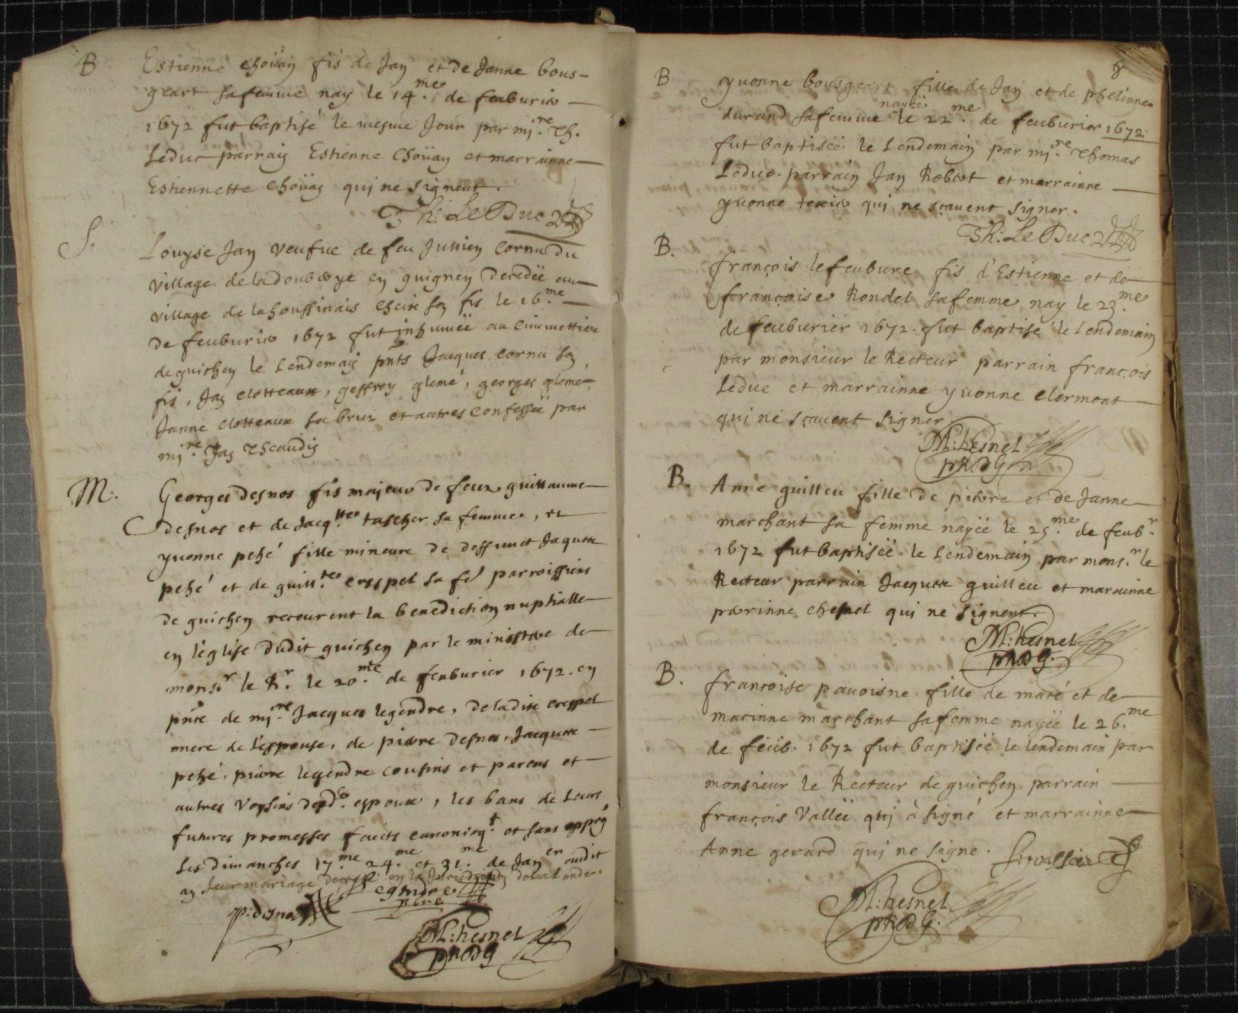 B Estienne choüan fis de Jan et de Janne bous-
geart sa femme nay le 14.me de feuburier
1672 fut baptisé le mesme Jour par mi.re Th.
Leduc parrain Estienne Choüan et marrainne
Estiennette choüan qui ne signent.
Th: Le Duc
S. Louyse Jan veufue de feu Jullien Cornu du
village de la en guignen decedée au
village de la houssinais cheix son fis le 16.me
de feuburier 1672 fut inhumée au cimmettiere
de guichen le Lendemain pnts Jacques cornu son
fis, Jan clotteaux, geffroy glemé, georges glemé,
Janne clotteaux sa bru et autres confessée par
mi.re Jan
M: Georges desnos fis majeur de feux guillaume
desnos et de Jacq.tte tascher sa femme, et
yvonne pehé fille mineure de deffunct Jaques
pehé et de guill.te crespel sa fe parroissiens
de guichen receurent la benediction nuptialle
en l'église dudit guichen par le ministere de
mons.r le R.r le 20.me de feuburier 1672. en
pnce de mi.re Jacques legendre, de ladite crespel
mere de l'espouse, de pierre desnos, Jacques
pehé, pierre legendre cousins et parens et
autres voysins desd. espoux, les bans de Leurs
futures promesses faicts canonicq.t et sans
Les dimanches 17.me 24.me et 31.me de Jan.er audit
an
p: desnos
M: hesnel
pR de G
8
B yvonne bousgeart fille de Jan et de phelinne
nayée
durand sa femme le 22.me de feuburier 1672
fut baptisée le Lendemain par mi.re Thomas
Leduc. parrain Jan Robert et marrainne
yvonne qui ne sçavent signer.
Th: Le Duc
B. françois lefeubure fis d'Estienne et de
françoise Rondel sa femme nay le 23.me
de feuburier 1672. fut baptisé le Lendemain
par monsieur le Recteur parrain françois
Leduc et marrainne yvonne clermont
qui ne sçavent signer
M: hesnel
pR de G
B. Anne guilleu fille de pierre et de Janne
marchant sa femme nayëe le 25.me de feub.r
1672 fut baptisëe le Lendemain par mons.r le
Recteur parrain Jacques guilleu et marainne
perrinne chesnel qui ne signent
M: hesnel
pR de G.
B. françoise pavoisne fille de maté et de
marinne marchant sa femme nayëe le 26.me
de feub. 1672 fut baptisëe le lendemain par
monsieur le Recteur de guichen parrain
françois Vallëe qui à signé et marrainne
Anne gerard qui ne signe. f: vallée
M: hesnel
pR de G.